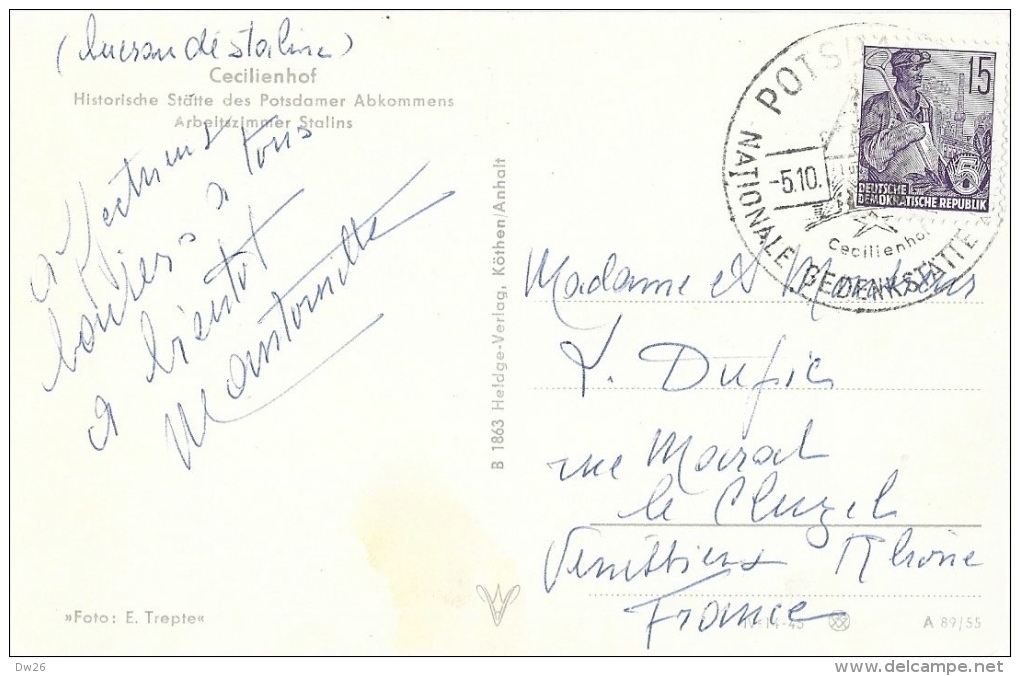 (bureau de staline)
Cecilienhof
Historische Stätte des Potsdamer Abkommens
Arbeitszimmer Stalins
affectueux
baisers à tous
à bientôt
B 1863 Heldge-Verlag, Köthen/Anhalt
»Foto: E. Trepte«
POTSD
NATIONALE GEDENKSTÄTTE
-5.10.
Cecilienhof
15
5
DEUTSCHE
DEMOKRATISCHE REPUBLIK
Madame et Monsieur
rue Marat
le Cluzel
Vénissieux Rhône
France
IV-14-45
A 89/55
Dw26
www.delcampe.net